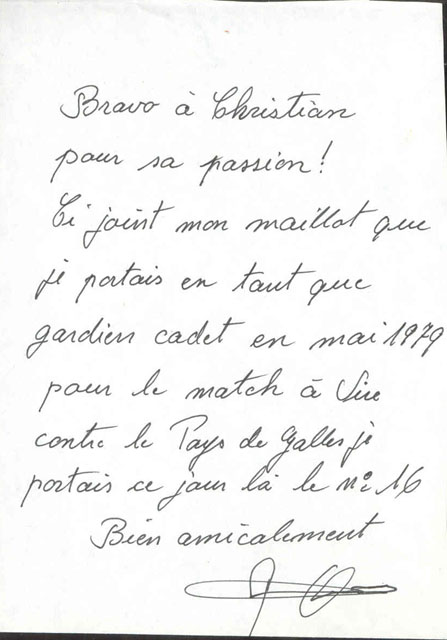 Bravo à Christian
pour sa passion !
Ci joint mon maillot que
je portais en tant que
gardien cadet en mai 1979
pour le match à Vire
contre le Pays de Galles je
portais ce jour là le n° 16
Bien amicalement